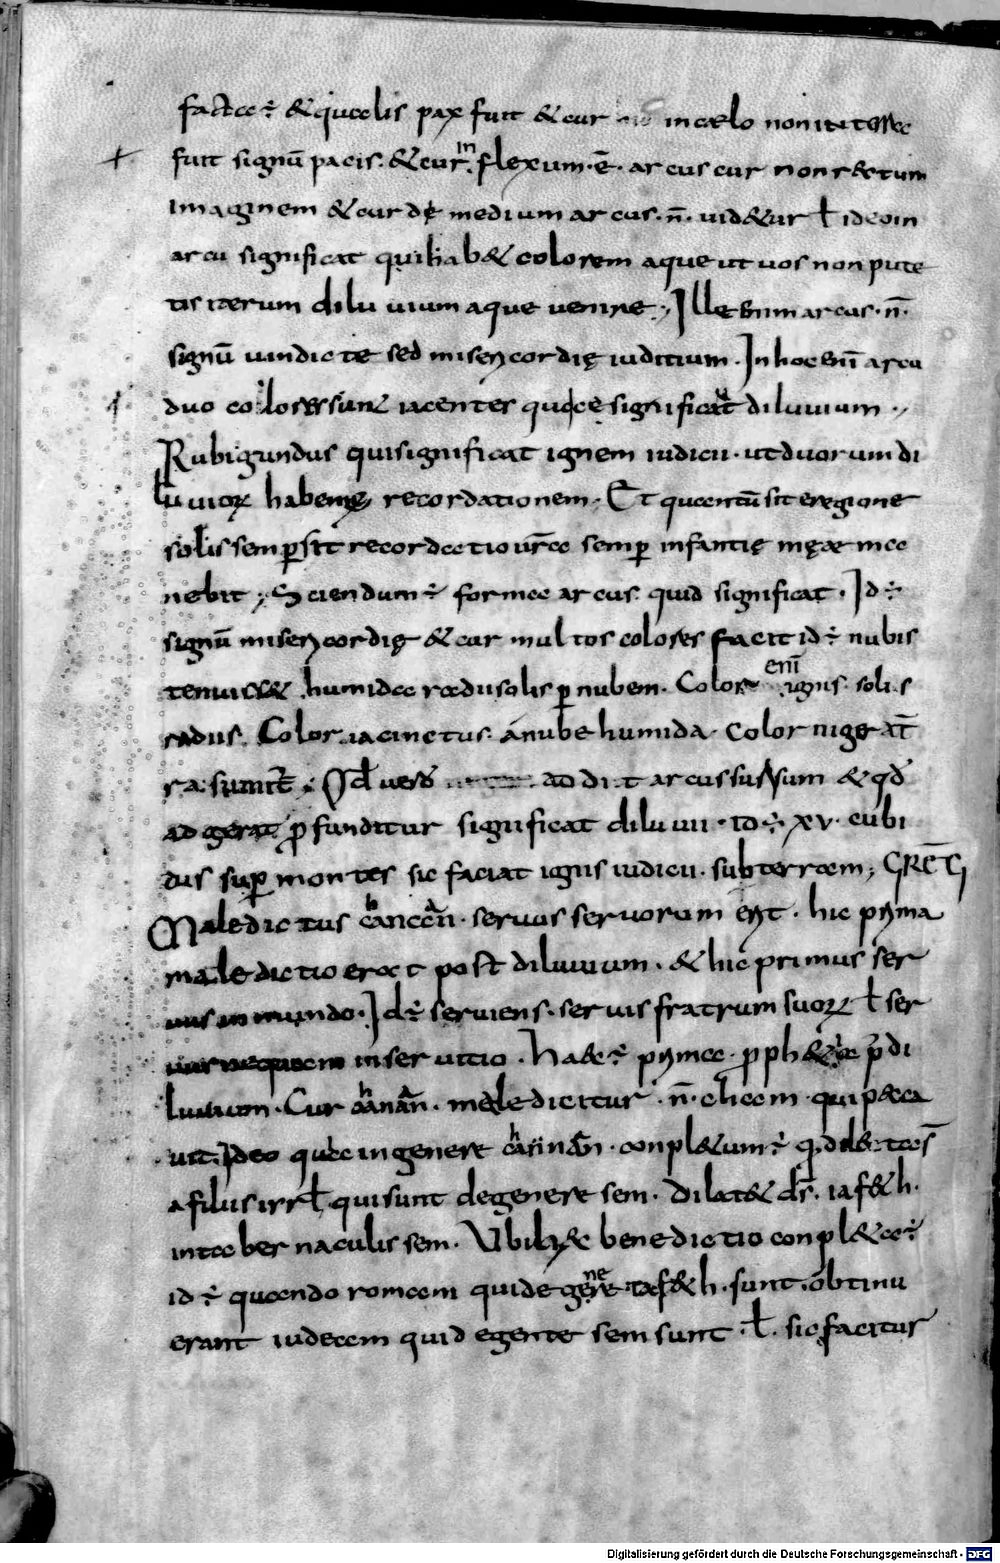 facta ÷ & qualis pax fuit & cur in caelo non
fuit signū pacis. & cur in flexum · ē · arcus cur non rectum
imaginem & cur de medium arcus · n̄ · uid&ur ł ideo in
arcu significat qui hab& colorem aque ut uos non pute
tis iterum diluuium aque uenire ; Ille enim arcus · n̄ ·
signū uindicte sed misericordię iuditium · In hoc enī arcu
duo colores sunt iacenter quae significat diluuium ·,
Rubigundus qui significat ignem iudicii · ut duorum di
luuiorum habemus recordationem · Et quantū sit e regione
solis semp sit recordatio ur̄a semp infantię męae ma
nebit ; Sciendum ÷ forma arcus quid significat · Id ÷
signū misericordię & cur multos colores facit id ÷ nubis
tenuis & humida radii solis p nubem · Color enī ignis solis
radius Color iacinctus a nube humida · Color niger at̄
ra sunt ; Id uero addit arcus sursum & qđ
ad profunditur significat diluuii · id ÷ xv · cubi
dus sup montes sic faciat ignis iudicii · sub terram ; GREG
Maledictus chanaan · seruus seruorum erit · hic prima
maledictio erat post diluuium · & hic primus ser
uus in mundo · Id ÷ seruiens · seruis fratrum suorum ł ser
in seruitio · Haec ÷ prima · proph&ia p̄ di
luuium · Cur chanān · maledicitur · n̄ · cham · qui pecca
uit · Ideo quia in genere chanān · conpl&um ÷
a filiis irł qui sunt de genere sem · Dilat& ds̄ · iaf&h ·
in tabernaculis sem · Ubi haec benedictio conpl&a ÷
id ÷ quando romam qui de genere iaf&h · sunt · obtinu
erant iudeam qui de gente sem sunt · ł · sic facitur
Digitalisierung gefördert durch die Deutsche Forschungsgemeinschaft - DFG